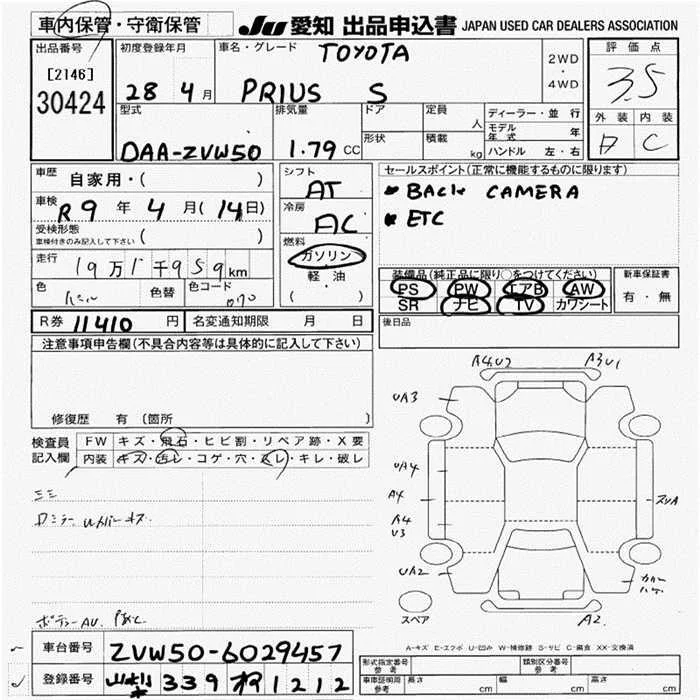 車内保管・守衛保管 JU 愛知 出品申込書 JAPAN USED CAR DEALERS ASSOCIATION
出品番号 [2146] 30424
初度登録年月 28 4月
車名・グレード TOYOTA
PRIUS S
2WD・4WD
評価点 3.5
外装 内装
D C
型式 DAA-ZVW50
排気量 1.79 CC
ドア 定員 人
形状 積載 kg
ディーラー・並行
モデル年式 年
ハンドル 左・右
車歴 自家用・( )
車検 R9年4月(14日)
受検形態
車検付きのみ記入して下さい ( )
走行 19万1千959km
色 色替 色コード 070
シフト AT
冷房 AC
燃料 ガソリン
軽・油
( )
セールスポイント(正常に機能するものに限ります)
BACK CAMERA
ETC
装備品(純正品に限り○をつけてください)
PS PW エアB AW
SR ナビ TV カワシート
新車保証書
有・無
後日品
R券 11410円 名変通知期限 月 日
注意事項申告欄(不具合内容等は具体的に記入して下さい)
修復歴 有 (箇所 )
検査員記入欄
FW キズ・飛石・ヒビ割・リペア跡・X要
内装 キズ・汚レ・コゲ・穴・スレ・キレ・破レ
A4,U2 A3U1
UA3
UA4
A4
A4
U3
UA2
スリA
スペア
A2
A-キズ E-エクボ U-凹み W-補修跡 S-サビ C-腐食 XX-交換済
車台番号 ZVW50-6029457
登録番号 339 1212
形式指定番号 参考
類別区分番号 参考
車車証明長 参考 cm
幅 cm
高さ cm